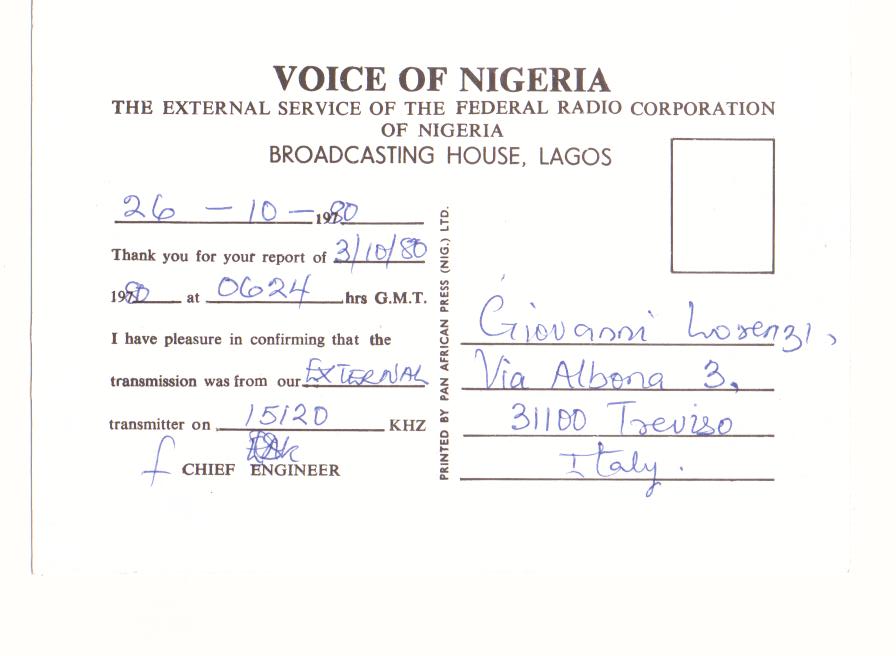 VOICE OF NIGERIA
THE EXTERNAL SERVICE OF THE FEDERAL RADIO CORPORATION
OF NIGERIA
BROADCASTING HOUSE, LAGOS
26 - 10 - 1980
Thank you for your report of 3/10/80
1980 at 0624 hrs G.M.T.
I have pleasure in confirming that the
transmission was from our EXTERNAL
transmitter on 15120 KHZ
f CHIEF ENGINEER
PRINTED BY PAN AFRICAN PRESS (NIG.) LTD.
Giovanni Lorenzi,
Via Albona 3,
31100 Treviso
Italy.